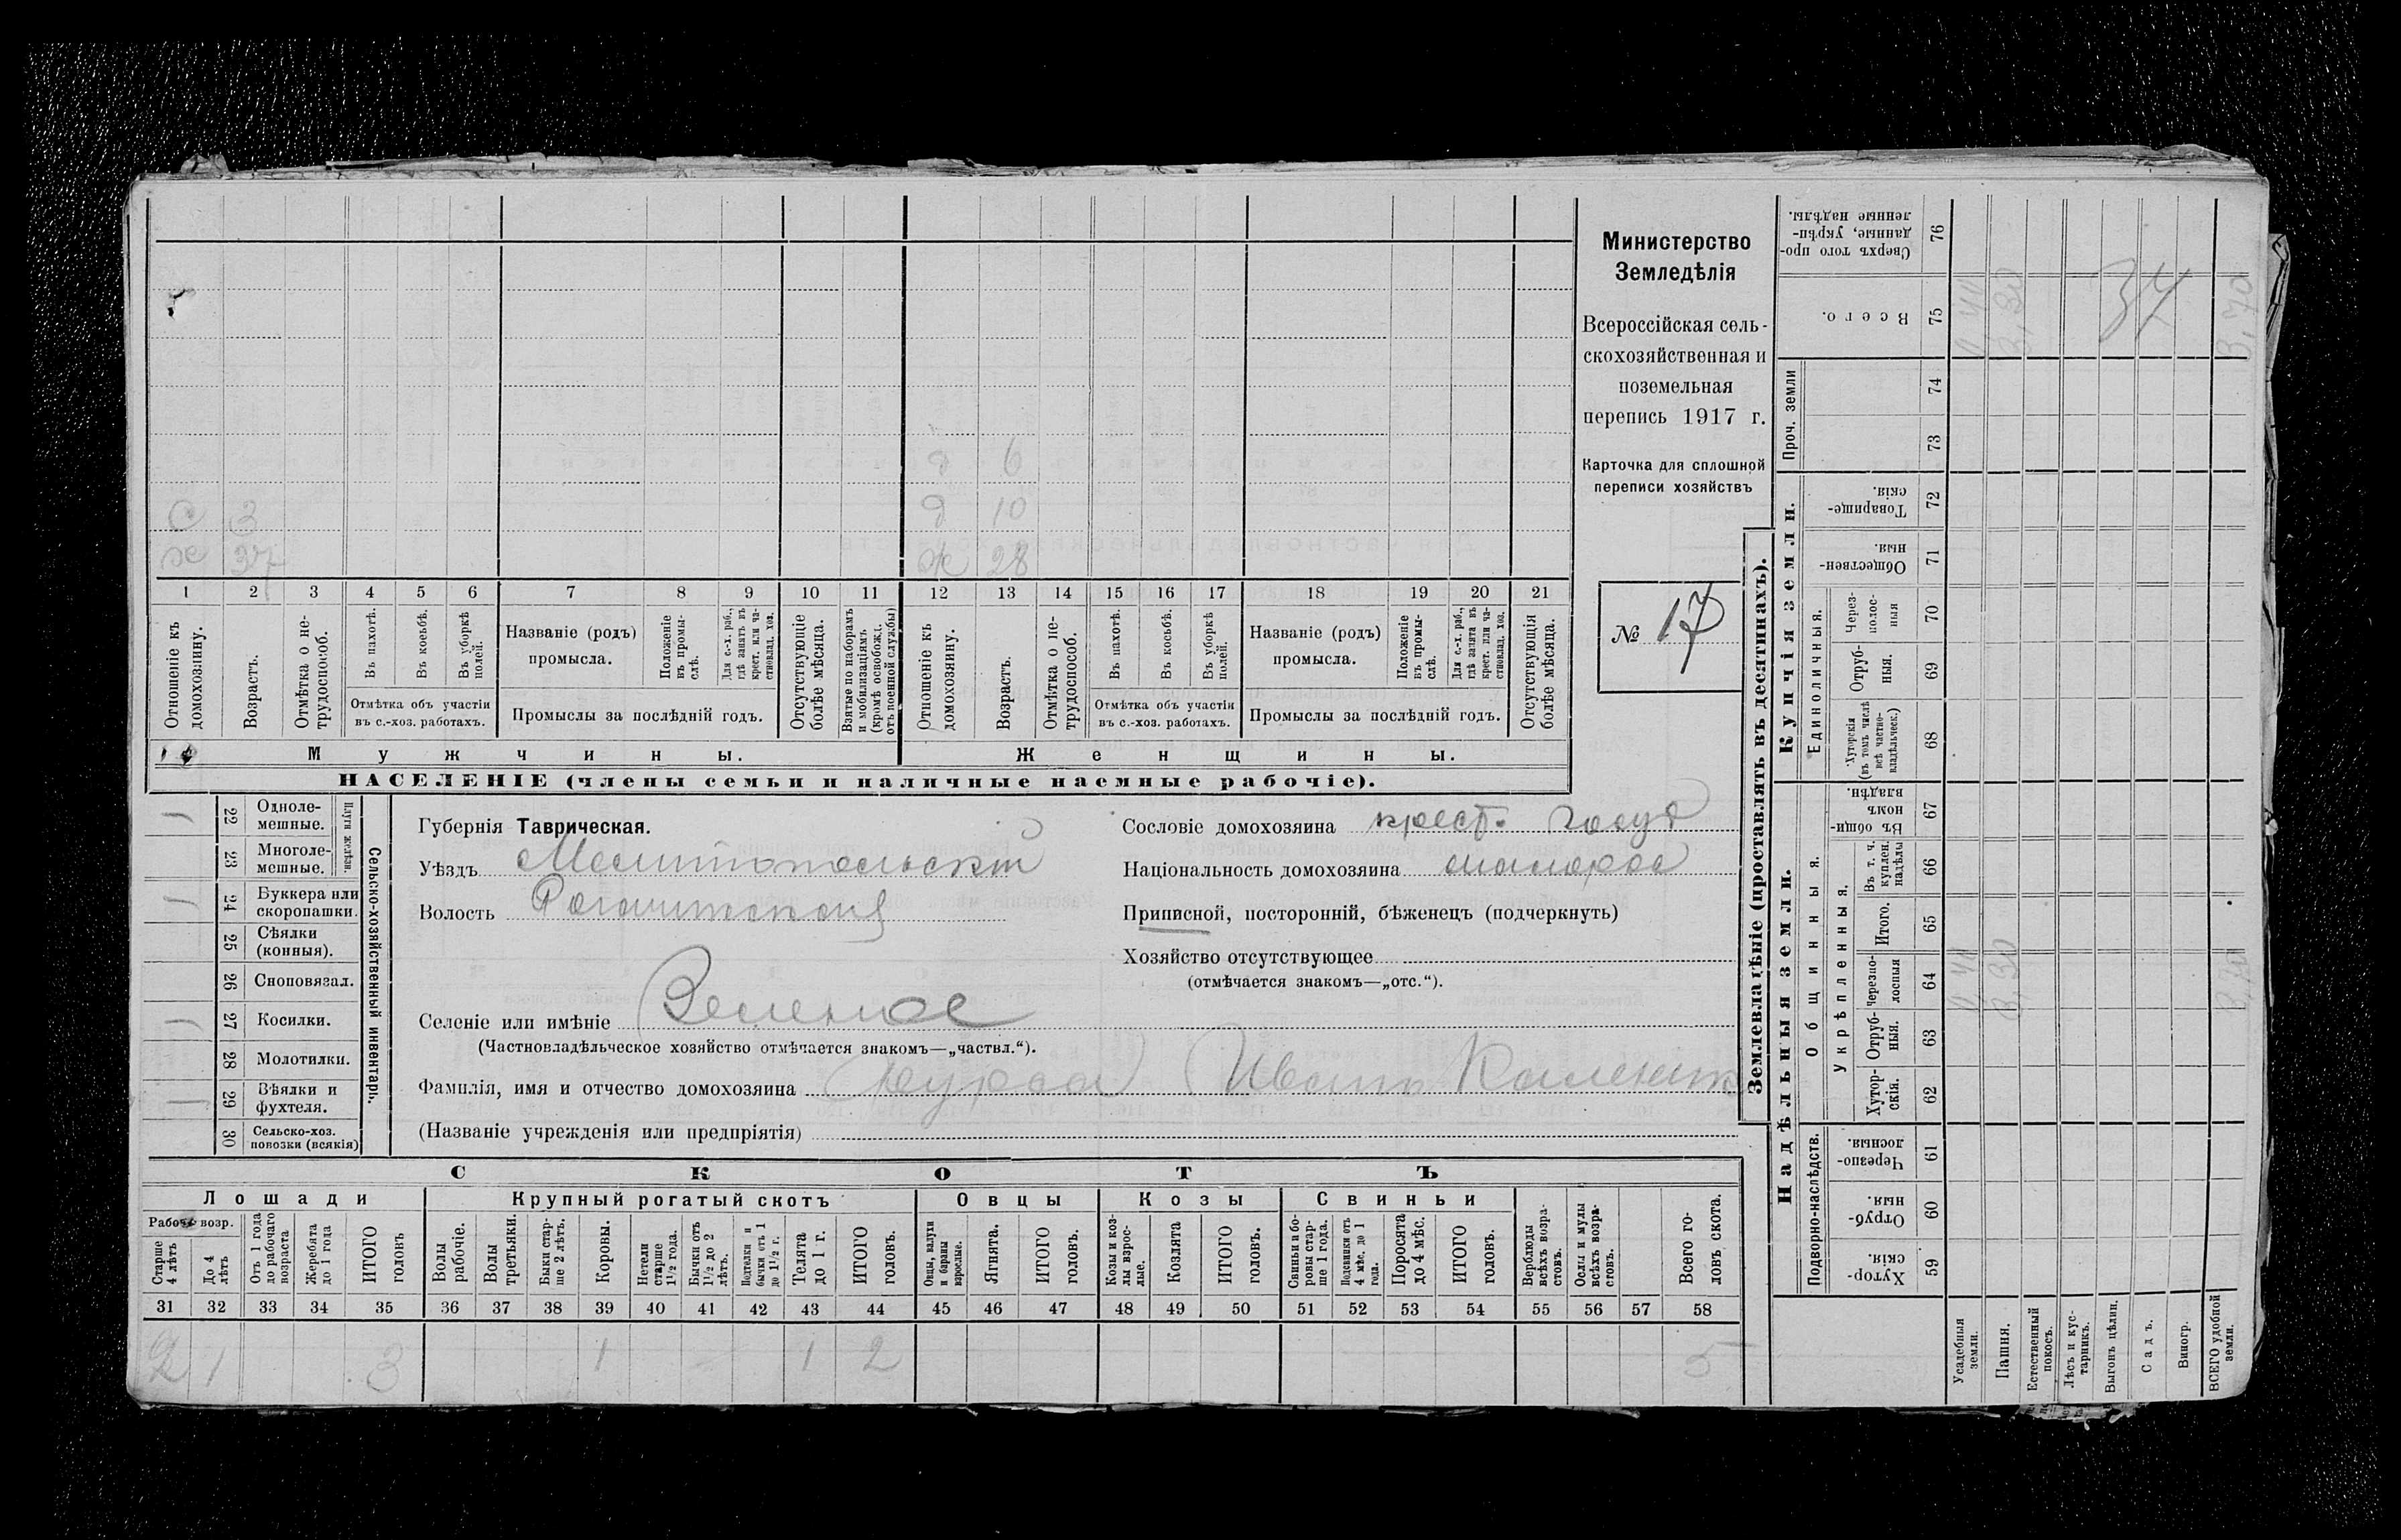 Министерство
Земледѣлія
Всероссійская сель-
скохозяйственная и
поземельная
перепись 1917 г.
Карточка для сплошной
переписи хозяйствъ
№ 17
д 6
С 3 д 10
х 37 ж 28
1 2 3 4 5 6 7 8 9 10 11 12 13 14 15 16 17 18 19 20 21
Отношеніе къ
домохозяину.
Возрастъ.
Отмѣтка о не-
трудоспособ.
Въ пахотѣ.
Въ косьбѣ.
Въ уборкѣ
полей.
Отмѣтка объ участіи
въ с.-хоз. работахъ.
Названіе (родъ)
промысла.
Положеніе
въ промы-
слѣ.
Для с.-х. раб.,
гдѣ занятъ въ
крест. или ча-
стновлад. хоз.
Промыслы за послѣдній годъ.
Отсутствующіе
болѣе мѣсяца.
Взятые по наборамъ
и мобилизаціямъ
(кромѣ освобожд.
отъ военной службы)
Отношеніе къ
домохозяину.
Возрастъ.
Отмѣтка о не-
трудоспособ.
Въ пахотѣ.
Въ косьбѣ.
Въ уборкѣ
полей.
Отмѣтка объ участіи
въ с.-хоз. работахъ.
Названіе (родъ)
промысла.
Положеніе
въ промы-
слѣ.
Для с.-х. раб.,
гдѣ занята въ
крест. или ча-
стновлад. хоз.
Промыслы за послѣдній годъ.
Отсутствующія
болѣе мѣсяца.
Мужчины. Женщины.
НАСЕЛЕНІЕ (члены семьи и наличные наемные рабочіе).
Сельско-хозяйственный инвентарь.
Плуги желѣзн.
1 22 Одноле-
мешные.
23 Многоле-
мешные.
1 24 Буккера или
скоропашки.
25 Сѣялки
(конныя).
26 Сноповязал.
1 27 Косилки.
28 Молотилки.
1 29 Вѣялки и
фухтеля.
30 Сельско-хоз.
повозки (всякія)
Губернія Таврическая.
Уѣздъ Мелитопольскій
Волость
Сословіе домохозяина крест. госуд
Національность домохозяина малорос
Приписной, посторонній, бѣженецъ (подчеркнуть)
Хозяйство отсутствующее
(отмѣчается знакомъ—„отс.“).
Селеніе или имѣніе Зеленое
(Частновладѣльческое хозяйство отмѣчается знакомъ—„частвл.“).
Фамилія, имя и отчество домохозяина Иванъ
(Названіе учрежденія или предпріятія)
СКОТЪ
Лошади Крупный рогатый скотъ Овцы Козы Свиньи
Рабоч. возр.
Старше
4 лѣтъ
До 4
лѣтъ
Отъ 1 года
до рабочаго
возраста
Жеребята
до 1 года
ИТОГО
головъ
Волы
рабочіе.
Волы
третьяки.
Быки стар-
ше 2 лѣтъ.
Коровы.
Нетели
старше
1½ года.
Бычки отъ
1½ до 2
лѣтъ.
Подтелки и
бычки отъ 1
до 1½ г.
Телята
до 1 г.
ИТОГО
головъ.
Овцы, валухи
и бараны
взрослые.
Ягнята.
ИТОГО
головъ.
Козы и коз-
лы взрос-
лые.
Козлята
ИТОГО
головъ.
Свиньи и бо-
ровы стар-
ше 1 года.
Подсвинки отъ
4 мѣс. до 1
года.
Поросята
до 4 мѣс.
ИТОГО
головъ.
Верблюды
всѣхъ возра-
стовъ.
Ослы и мулы
всѣхъ возра-
стовъ.
Всего го-
ловъ скота.
31 32 33 34 35 36 37 38 39 40 41 42 43 44 45 46 47 48 49 50 51 52 53 54 55 56 57 58
2 1 3 1 1 2 5
Землевладѣніе (проставлять въ десятинахъ).
Надѣльныя земли. Купчія земли. Проч. земли
Подворно-наслѣдств. Общинныя. Укрѣпленныя. Единоличныя.
Хутор-
скія. 59
Отруб-
ныя. 60
Черезпо-
лосныя. 61
Хутор-
скія. 62
Отруб-
ныя. 63
Черезпо-
лосныя 64
Итого. 65
Въ т. ч.
куплен.
надѣлы 66
Въ общи-
номъ
владѣн. 67
Хуторскія
(въ томъ числѣ
всѣ частно-
владѣльческ.) 68
Отруб-
ныя. 69
Через-
полос-
ныя 70
Обществен-
ныя. 71
Товарище-
скія. 72
73
74
Всего. 75
Сверхъ того про-
данные, укрѣп-
ленные надѣлы. 76
Усадебныя
земли.
Пашня.
Естественный
покосъ.
Лѣсъ и кус-
тарникъ.
Выгонъ цѣлин.
Садъ.
Виногр.
ВСЕГО удобной
земли.
0,40 0,40
3,30 3,30
34
3,70 3,70